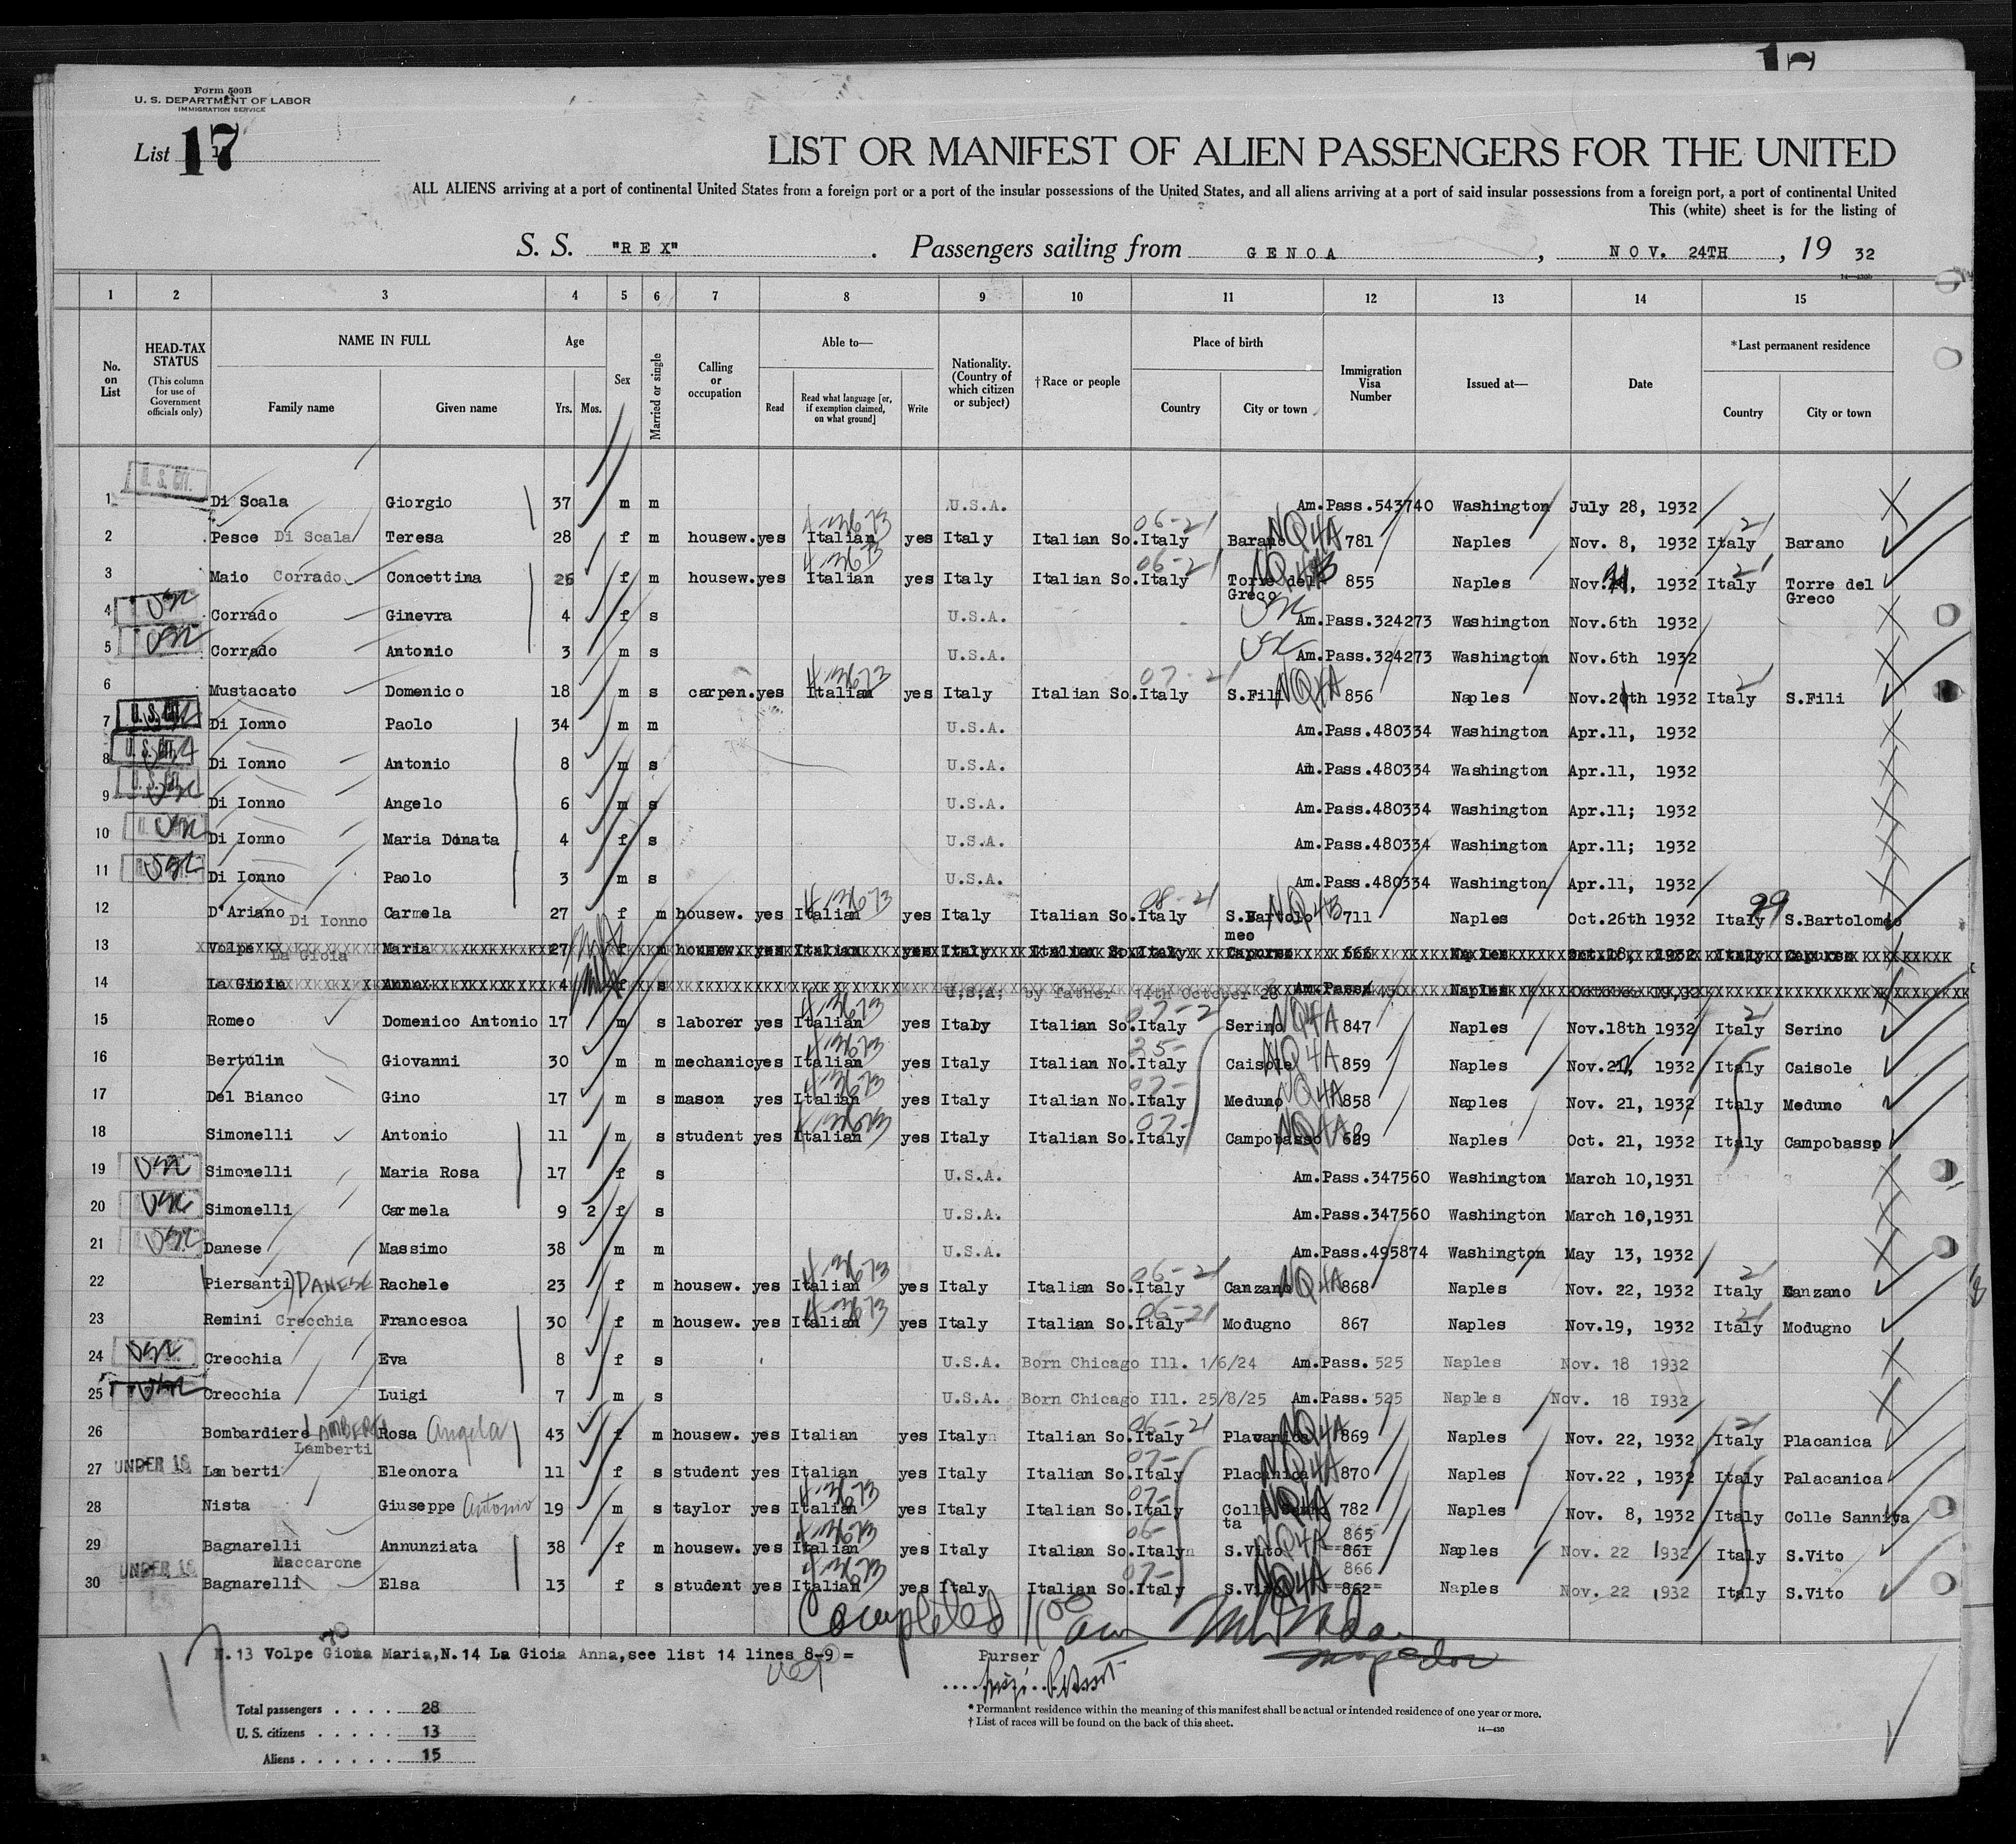 Form 500B
U. S. DEPARTMENT OF LABOR
IMMIGRATION SERVICE
List 17
LIST OR MANIFEST OF ALIEN PASSENGERS FOR THE UNITED
ALL ALIENS arriving at a port of continental United States from a foreign port or a port of the insular possessions of the United States, and all aliens arriving at a port of said insular possessions from a foreign port, a port of continental United
This (white) sheet is for the listing of
S. S. "REX" . Passengers sailing from GENOA , NOV. 24TH , 19 32
1 2 3 4 5 6 7 8 9 10 11 12 13 14 15
No. on List
HEAD-TAX STATUS (This column for use of Government officials only)
NAME IN FULL Family name Given name
Age Yrs. Mos.
Sex
Married or single
Calling or occupation
Able to— Read Read what language [or, if exemption claimed, on what ground] Write
Nationality. (Country of which citizen or subject)
†Race or people
Place of birth Country City or town
Immigration Visa Number
Issued at—
Date
*Last permanent residence Country City or town
1 U. S. CIT. Di Scala Giorgio 37 m m U.S.A. Am.Pass.543740 Washington July 28, 1932
2 Pesce Di Scala Teresa 28 f m housew. yes Italian 4-3673 yes Italy Italian So. Italy 06-21 Barano NQ4A 781 Naples Nov. 8, 1932 Italy 21 Barano
3 Maio Corrado Concettina 26 f m housew. yes Italian 4-3673 yes Italy Italian So. Italy 06-21 Torre del Greco 855 Naples Nov. 1932 Italy 21 Torre del Greco
4 USC Corrado Ginevra 4 f s U.S.A. USC Am.Pass.324273 Washington Nov.6th 1932
5 USC Corrado Antonio 3 m s U.S.A. USC Am.Pass.324273 Washington Nov.6th 1932
6 Mustacato Domenico 18 m s carpen. yes Italian 4-3673 yes Italy Italian So. Italy 07-21 S.Fili NQ4A 856 Naples Nov. 1932 Italy 21 S.Fili
7 U. S. CIT. Di Ionno Paolo 34 m m U.S.A. Am.Pass.480334 Washington Apr.11, 1932
8 U. S. CIT. Di Ionno Antonio 8 m s U.S.A. Am.Pass.480334 Washington Apr.11, 1932
9 U. S. CIT. Di Ionno Angelo 6 m s U.S.A. Am.Pass.480334 Washington Apr.11; 1932
10 USC Di Ionno Maria Donata 4 f s U.S.A. Am.Pass.480334 Washington Apr.11; 1932
11 USC Di Ionno Paolo 3 m s U.S.A. Am.Pass.480334 Washington Apr.11, 1932
12 D'Ariano Di Ionno Carmela 27 f m housew. yes Italian 4-3673 yes Italy Italian So. Italy 08-21 S.Bartolo meo NQ4B 711 Naples Oct.26th 1932 Italy 29 S.Bartolomeo
13 Volpe La Gioia Maria 27 f m housew. yes Italian yes Italy Italian So. Italy 666 Naples 1932 Italy
14 La Gioia Anna 4 f s U.S.A. by father 14th October 28 Naples
15 Romeo Domenico Antonio 17 m s laborer yes Italian 4-3673 yes Italy Italian So. Italy 07-2 Serino NQ4A 847 Naples Nov.18th 1932 Italy 21 Serino
16 Bertulin Giovanni 30 m m mechanic yes Italian 4-3673 yes Italy Italian No. Italy 25- Caisole NQ4A 859 Naples Nov.21, 1932 Italy Caisole
17 Del Bianco Gino 17 m s mason yes Italian 4-3673 yes Italy Italian No. Italy 07- Meduno NQ4A 858 Naples Nov. 21, 1932 Italy Meduno
18 Simonelli Antonio 11 m s student yes Italian 4-3673 yes Italy Italian So. Italy 07- Campobasso NQ4A Naples Oct. 21, 1932 Italy Campobasso
19 USC Simonelli Maria Rosa 17 f s U.S.A. Am.Pass.347560 Washington March 10,1931
20 USC Simonelli Carmela 9 2 f s U.S.A. Am.Pass.347560 Washington March 10,1931
21 USC Danese Massimo 38 m m U.S.A. Am.Pass.495874 Washington May 13, 1932
22 Piersanti DANESE Rachele 23 f m housew. yes Italian 4-3673 yes Italy Italian So. Italy 06-21 Canzano NQ4A 868 Naples Nov. 22, 1932 Italy 21 Canzano
23 Remini Crecchia Francesca 30 f m housew. yes Italian 4-3673 yes Italy Italian So. Italy 06-21 Modugno 867 Naples Nov.19, 1932 Italy 21 Modugno
24 USC Crecchia Eva 8 f s U.S.A. Born Chicago Ill. 1/6/24 Am.Pass. 525 Naples Nov. 18 1932
25 USC Crecchia Luigi 7 m s U.S.A. Born Chicago Ill. 25/8/25 Am.Pass. 525 Naples Nov. 18 1932
26 Bombardiere LAMBERTI Lamberti Rosa Angela 43 f m housew. yes Italian yes Italy Italian So. Italy 06-21 Placanica NQ4A 869 Naples Nov. 22, 1932 Italy 21 Placanica
27 UNDER 16 Lamberti Eleonora 11 f s student yes Italian yes Italy Italian So. Italy 07- Placanica NQ4A 870 Naples Nov.22, 1932 Italy Palacanica
28 Nista Giuseppe Antonio 19 m s taylor yes Italian 4-3673 yes Italy Italian So. Italy 07- Colle Sanni ta NQ4A 782 Naples Nov. 8, 1932 Italy Colle Sannita
29 Bagnarelli Maccarone Annunziata 38 f m housew. yes Italian 4-3673 yes Italy Italian So. Italy 06- S.Vito NQ4A 865 861 Naples Nov. 22 1932 Italy S.Vito
30 UNDER 16 Bagnarelli Elsa 13 f s student yes Italian 4-3673 yes Italy Italian So. Italy 07- S.Vito NQ4A 866 862 Naples Nov. 22 1932 Italy S.Vito
Completed
N.13 Volpe Gioia Maria,N.14 La Gioia Anna,see list 14 lines 8-9 =
Purser
Total passengers . . . . 28
U. S. citizens . . . . . 13
Aliens . . . . . . 15
* Permanent residence within the meaning of this manifest shall be actual or intended residence of one year or more.
† List of races will be found on the back of this sheet.
14—430